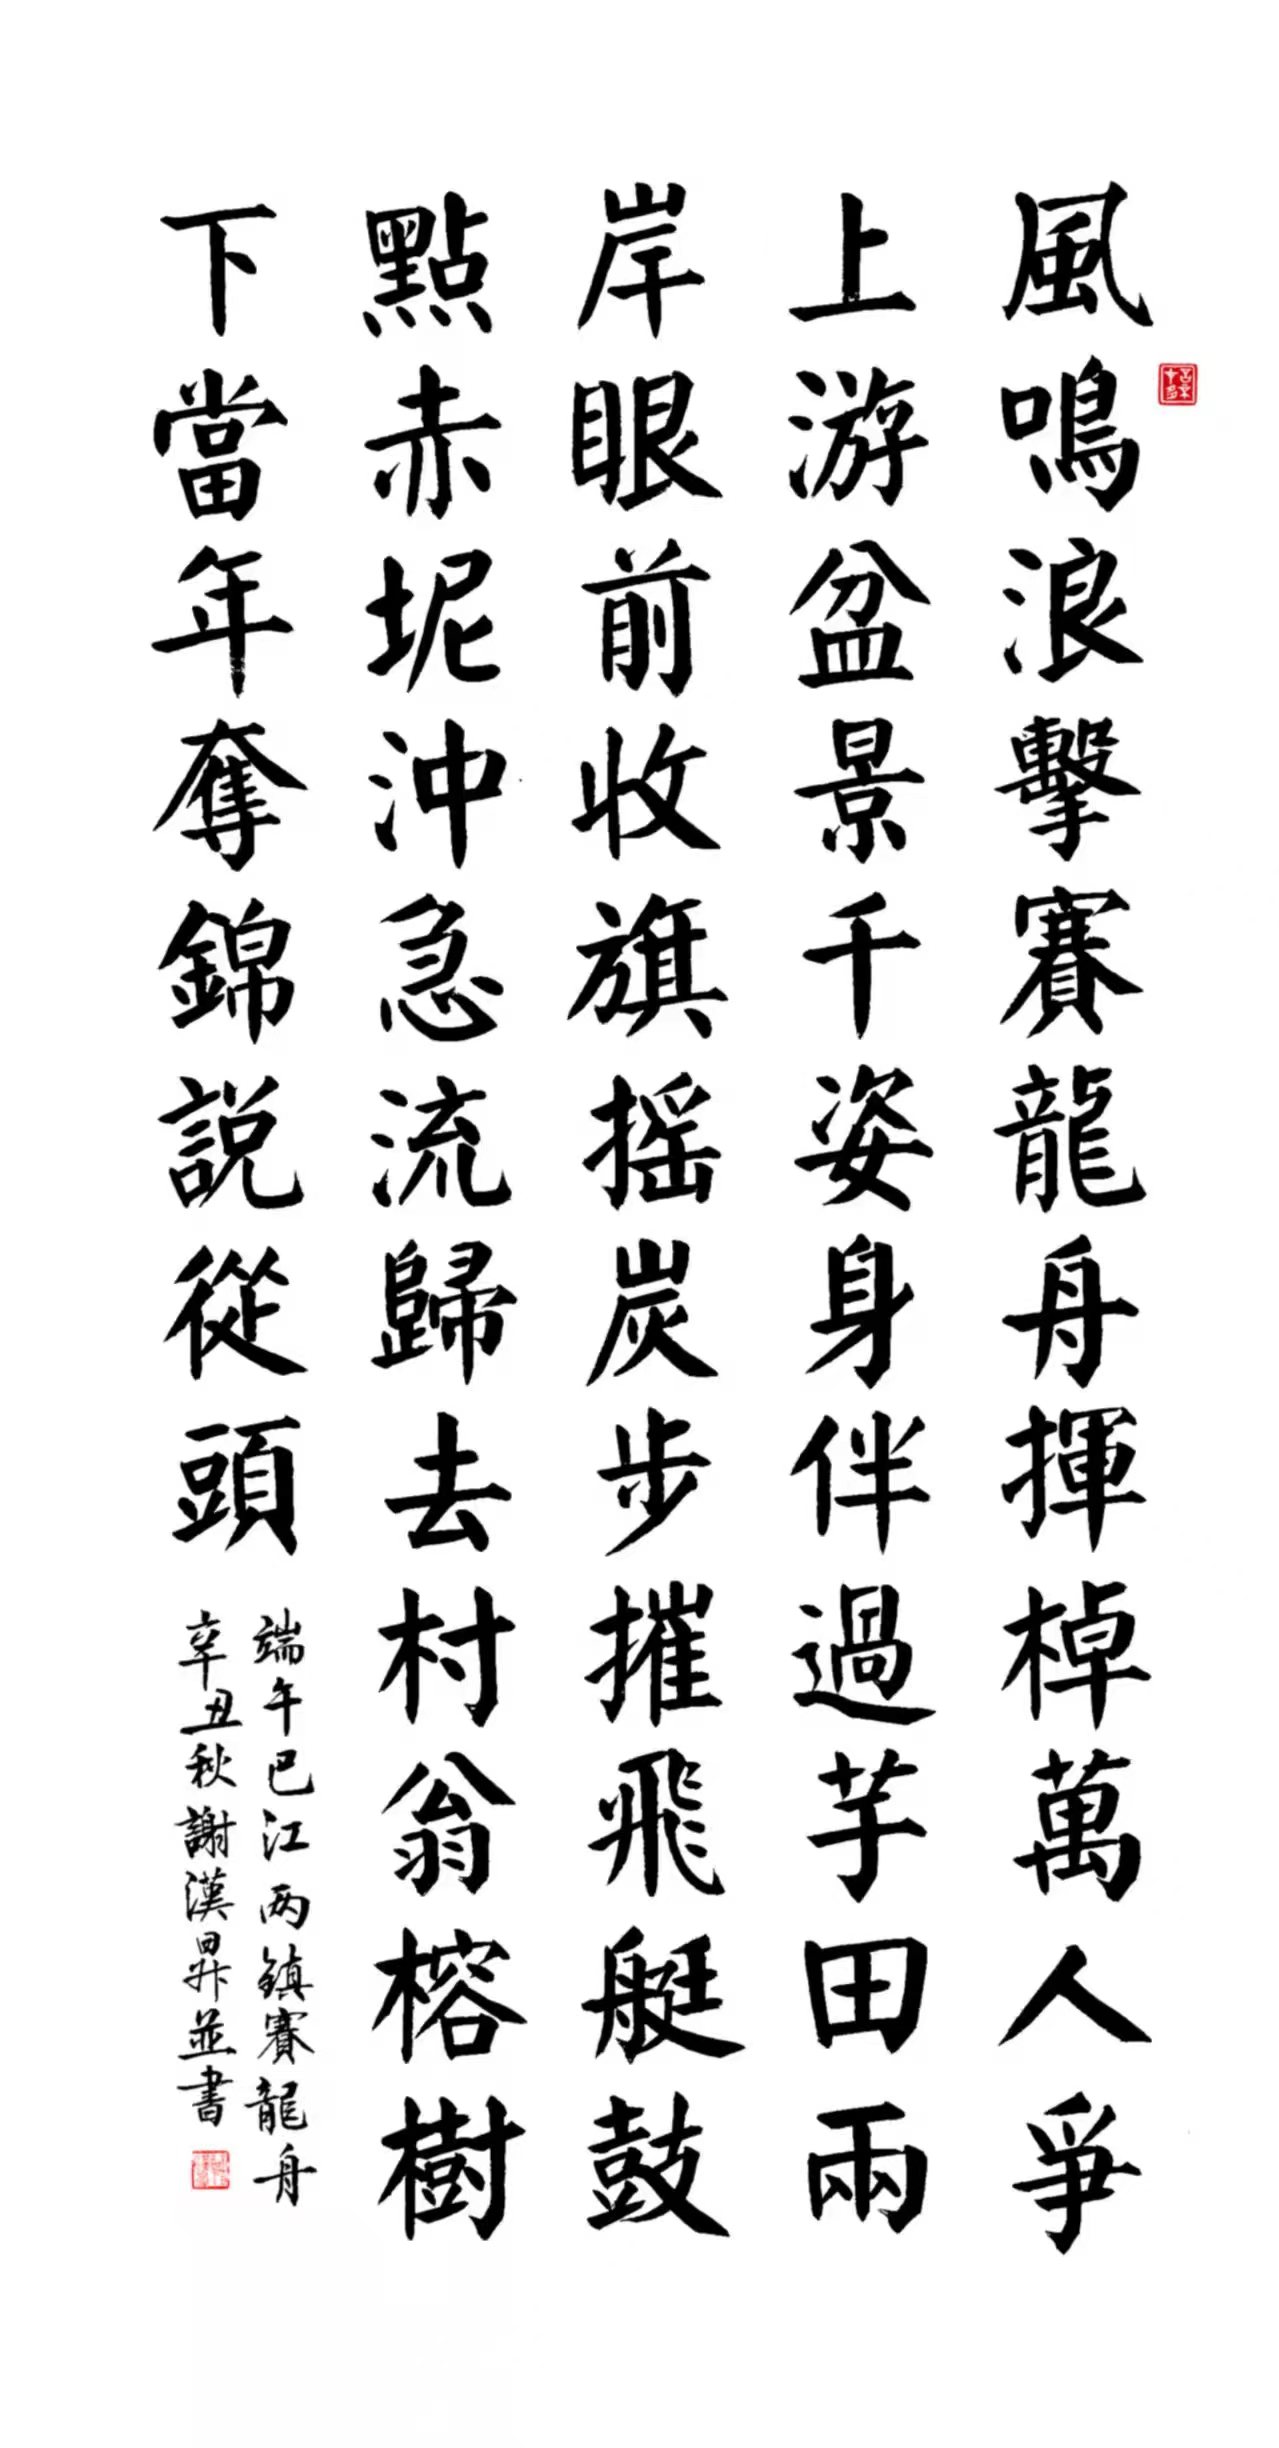 風鳴浪擊賽龍舟揮棹萬人爭
上游盆景千姿身伴過芋田兩
岸眼前收旗摇炭步摧飛艇鼓
點赤坭沖急流歸去村翁榕樹
下當年奪錦説從頭
端午巴江两鎮賽龍舟
辛丑秋謝漢昇並書